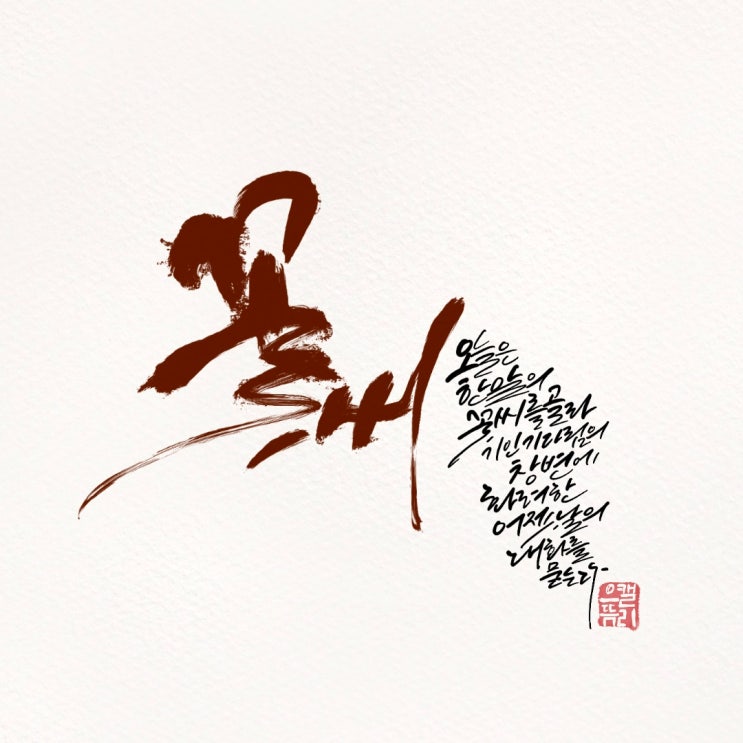 꽃씨
오늘은
한 알의
꽃씨를 골라
기인 기다림의
창변에
화려한
어제ㅅ날의
대화를
묻는다.
으뜸
캘리